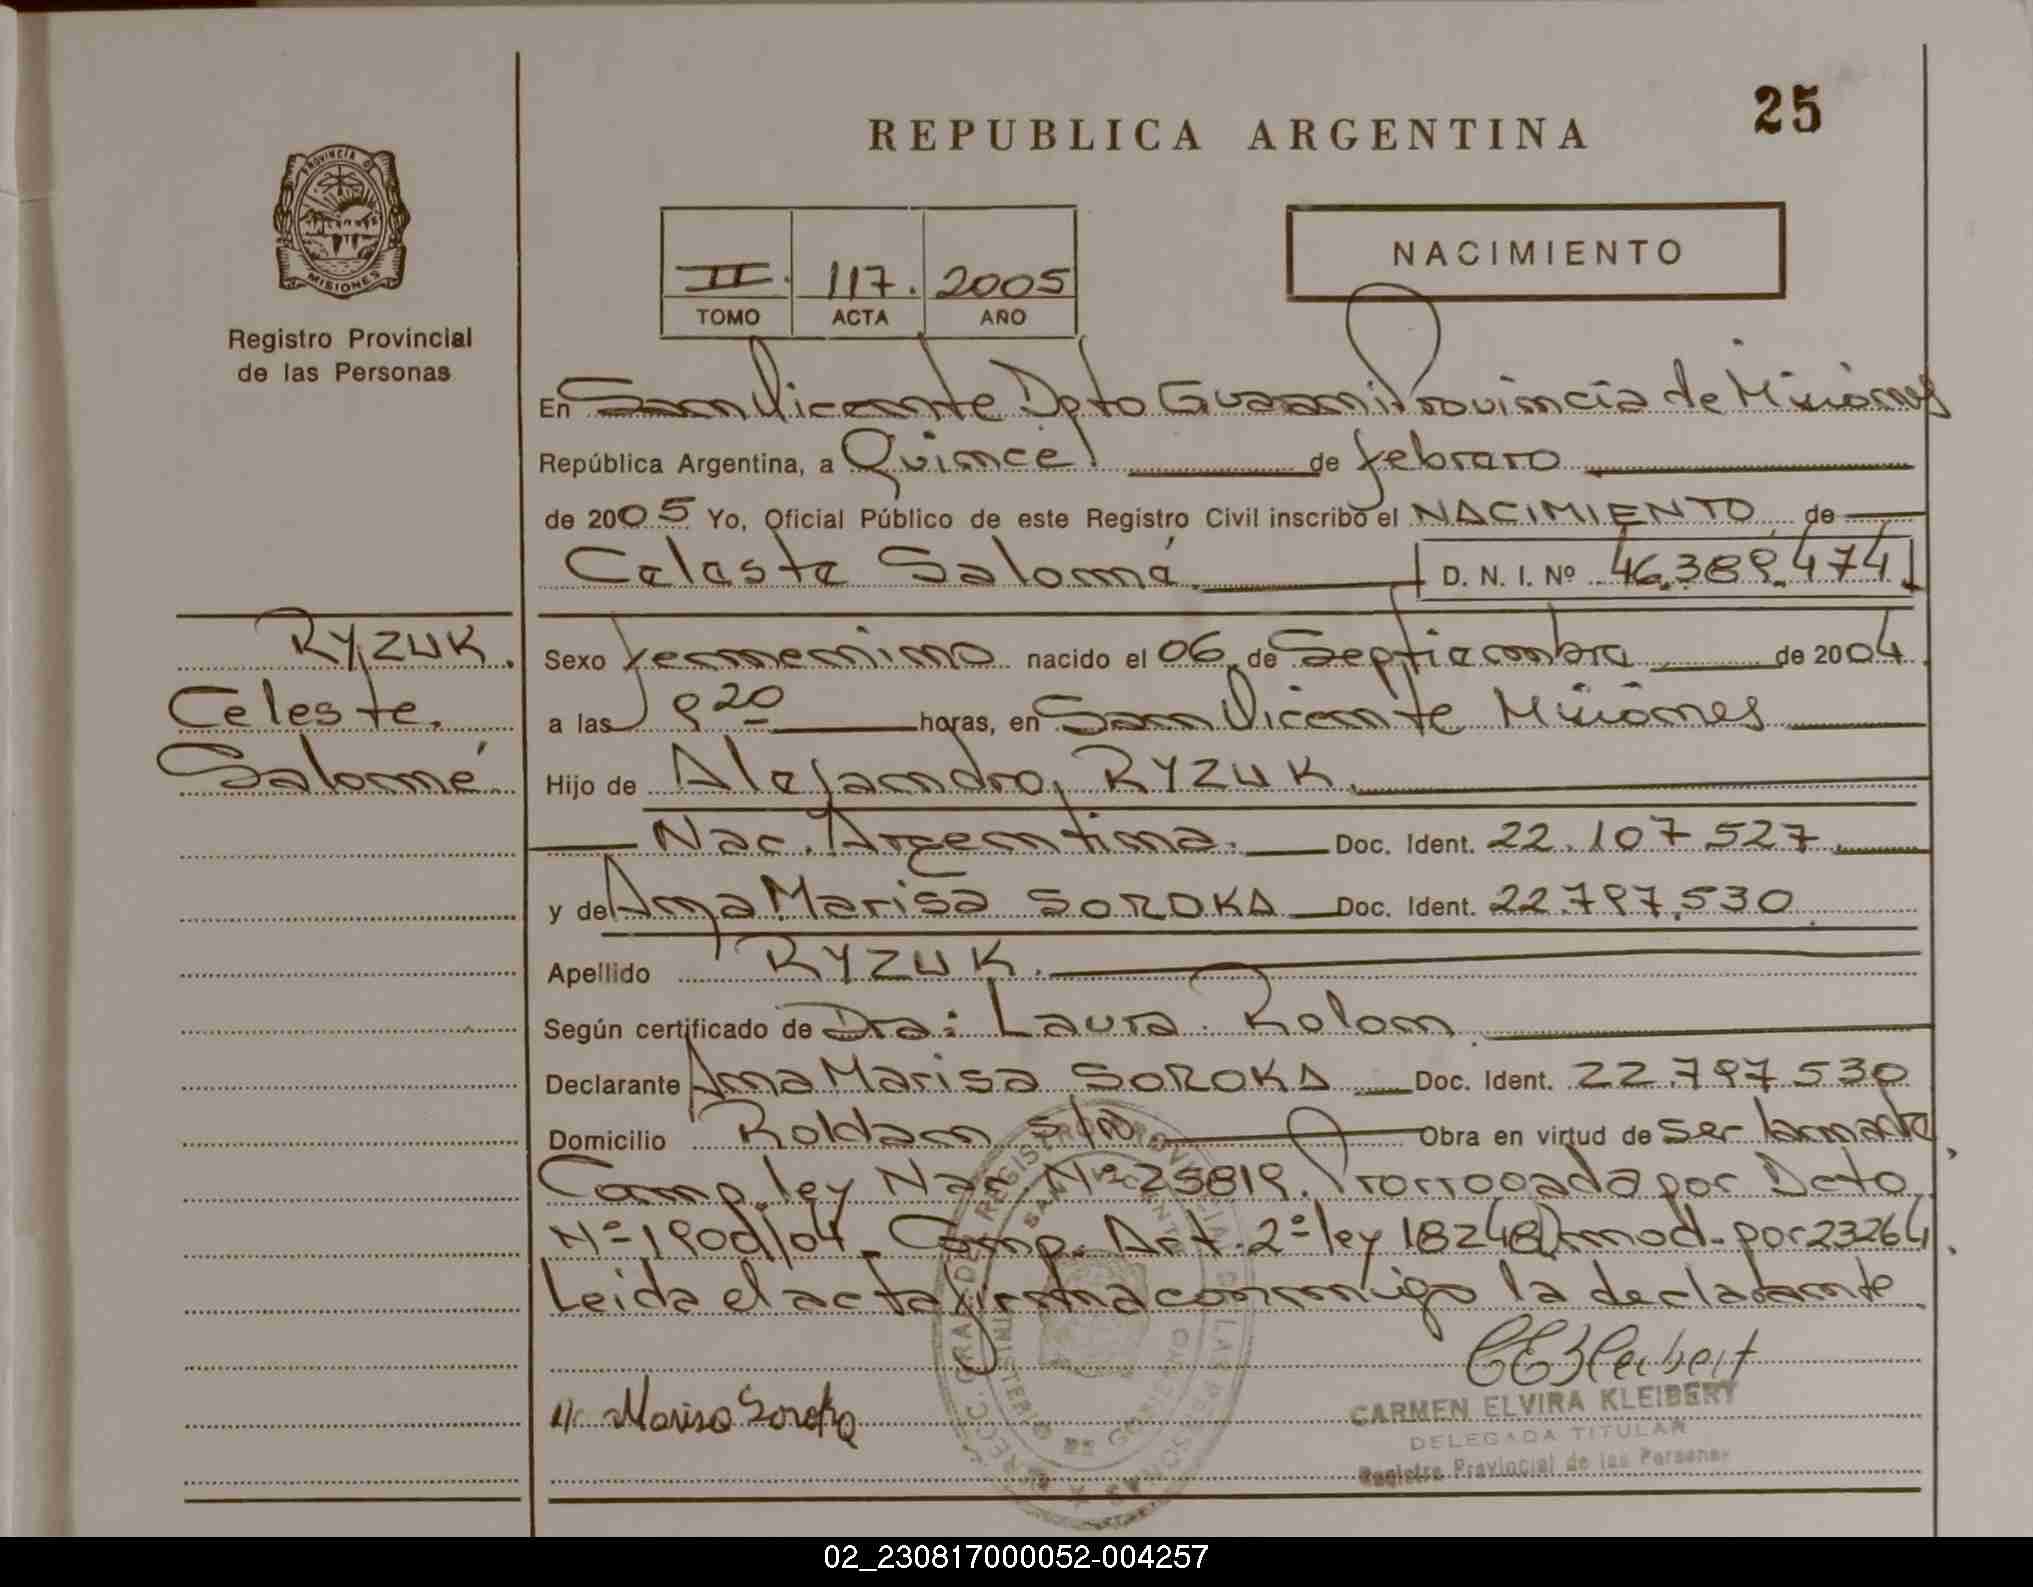 25
REPUBLICA ARGENTINA
PROVINCIA DE
MISIONES
Registro Provincial
de las Personas
NACIMIENTO
II. 117. 2005
TOMO ACTA AÑO
En San Vicente Dpto Guaraní Provincia de Misiones
República Argentina, a Quince de febrero
de 2005 Yo, Oficial Público de este Registro Civil inscribo el NACIMIENTO de
Celeste Salomé D. N. I. Nº 46.389.474
RYZUK.
Celeste.
Salomé
Sexo femenino nacido el 06 de Septiembre de 2004
a las 9 20 horas, en San Vicente Misiones
Hijo de Alejandro RYZUK
Nac. Argentina. Doc. Ident. 22.107.527
y de Ana Marisa SOROKA Doc. Ident. 22.797.530
Apellido RYZUK.
Según certificado de Dra: Laura Rolon
Declarante Ana Marisa SOROKA Doc. Ident. 22.797.530
Domicilio Roldan s/n Obra en virtud de ser la madre
Comp. ley Nac. Nº 25819. Prorrogada por Dcto
Nº 190 /04. Comp. Art. 2º ley 18248 mod. por 23264
Leida el acta firma conmigo la declarante
A. Marisa Soroka
CEKleibert
CARMEN ELVIRA KLEIBERT
DELEGADA TITULAR
Registro Provincial de las Personas
02_230817000052-004257